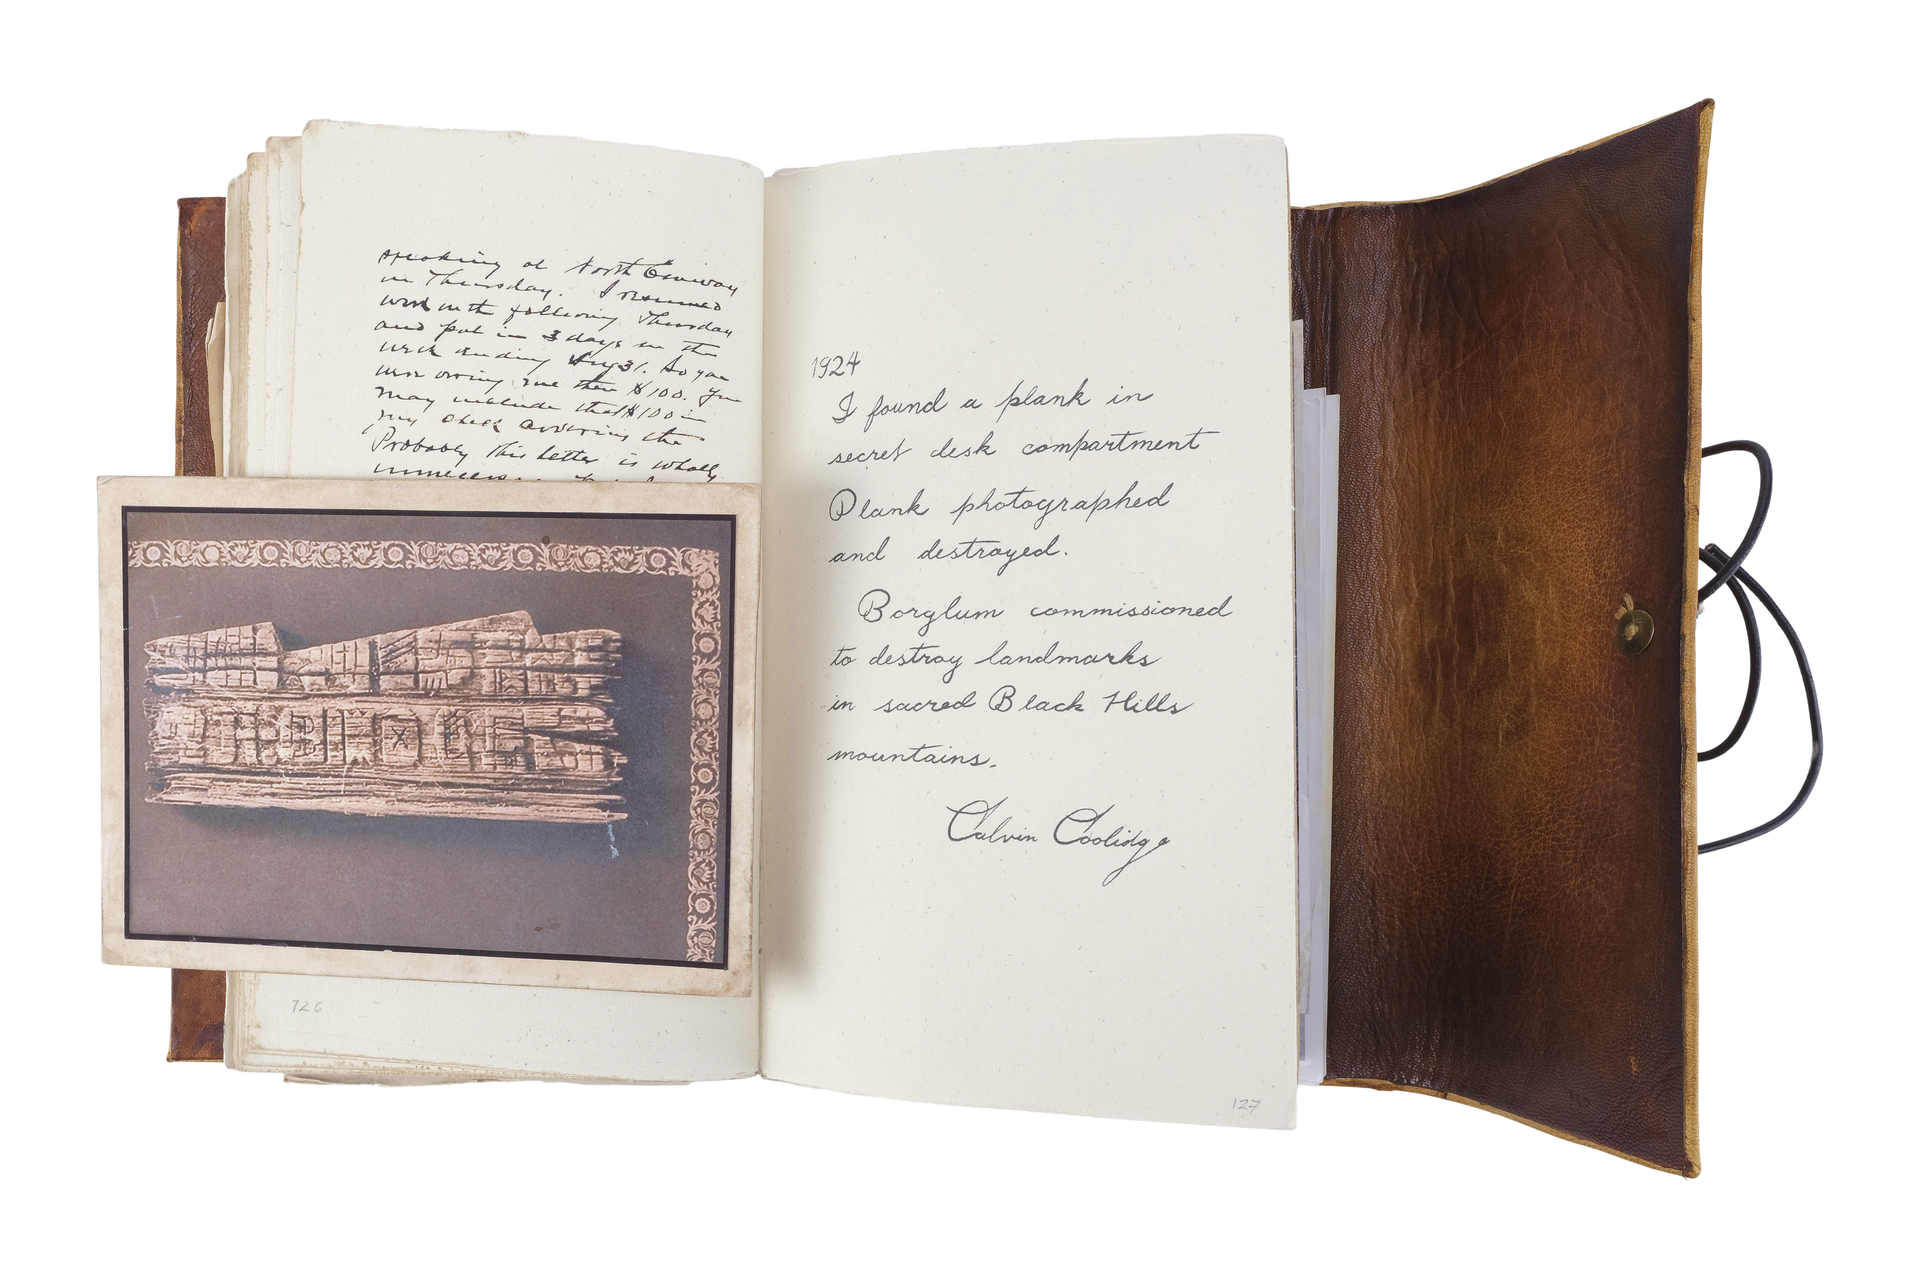 speaking at North Conway
in Thursday. I resumed
work on the following Thursday
and put in 3 days in the
week ending Aug 31. So you
were owing me then $100. You
may include that $100 in
my check covering the
Probably this letter is wholly
726
1924
I found a plank in
secret desk compartment
Plank photographed
and destroyed.
Borglum commissioned
to destroy landmarks
in sacred Black Hills
mountains.
Calvin Coolidge
127